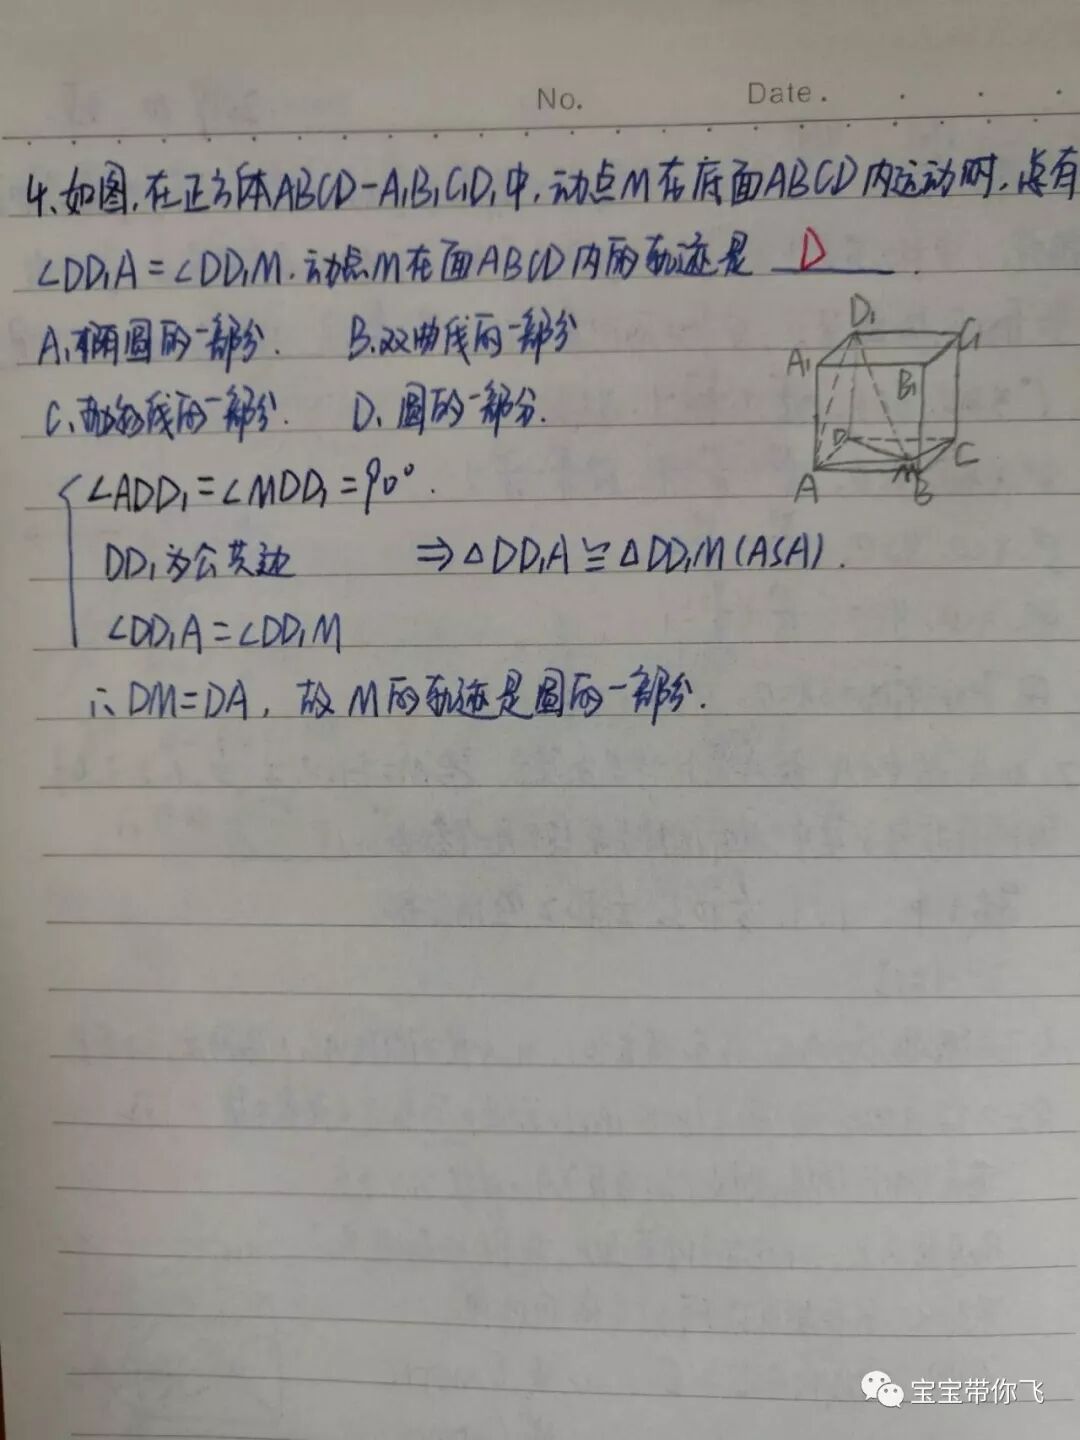 No. Date.
4、如图,在正方体ABCD-A₁B₁C₁D₁中,动点M在底面ABCD内运动时,总有
∠DD₁A=∠DD₁M.动点M在面ABCD内的轨迹是 D .
A、椭圆的一部分. B、双曲线的一部分
C、抛物线的一部分. D、圆的一部分.
D₁ C₁
A₁ B₁
D C
A M B
∠ADD₁=∠MDD₁=90°.
DD₁为公共边 ⇒△DD₁A≌△DD₁M(ASA).
∠DD₁A=∠DD₁M
∴DM=DA,故M的轨迹是圆的一部分.
宝宝带你飞